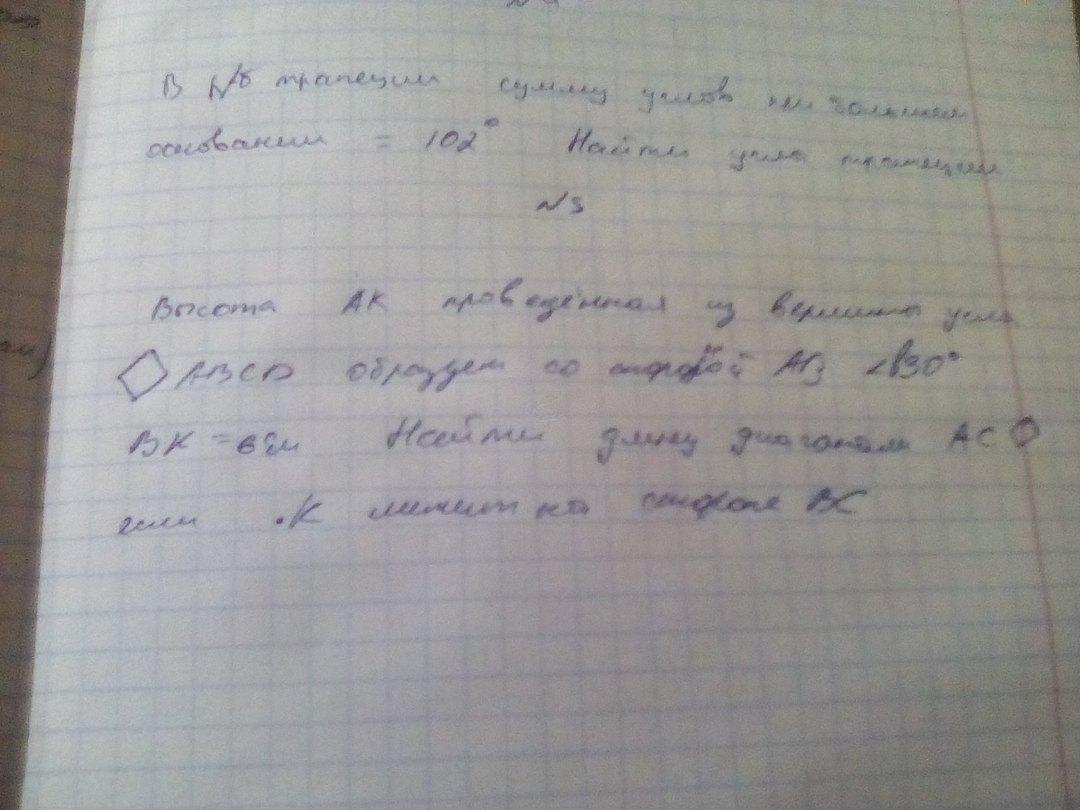 В р/б трапеции сумму углов при большем
основании = 102° Найти углы трапеции
№5
Высота АК проведённая из вершины угла
АВСD образует со стороной АВ <В30°
ВК = 6см Найти длину диагонали АС
если .К лежит на стороне ВС